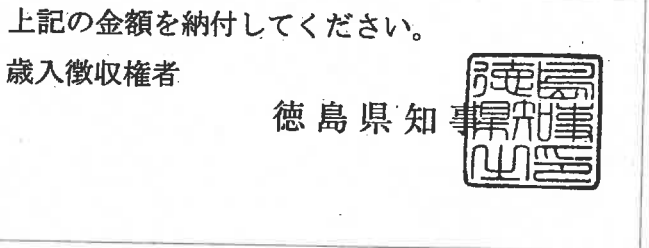 上記の金額を納付してください。
歳入徴収権者
徳島県知事
徳島県知事之印